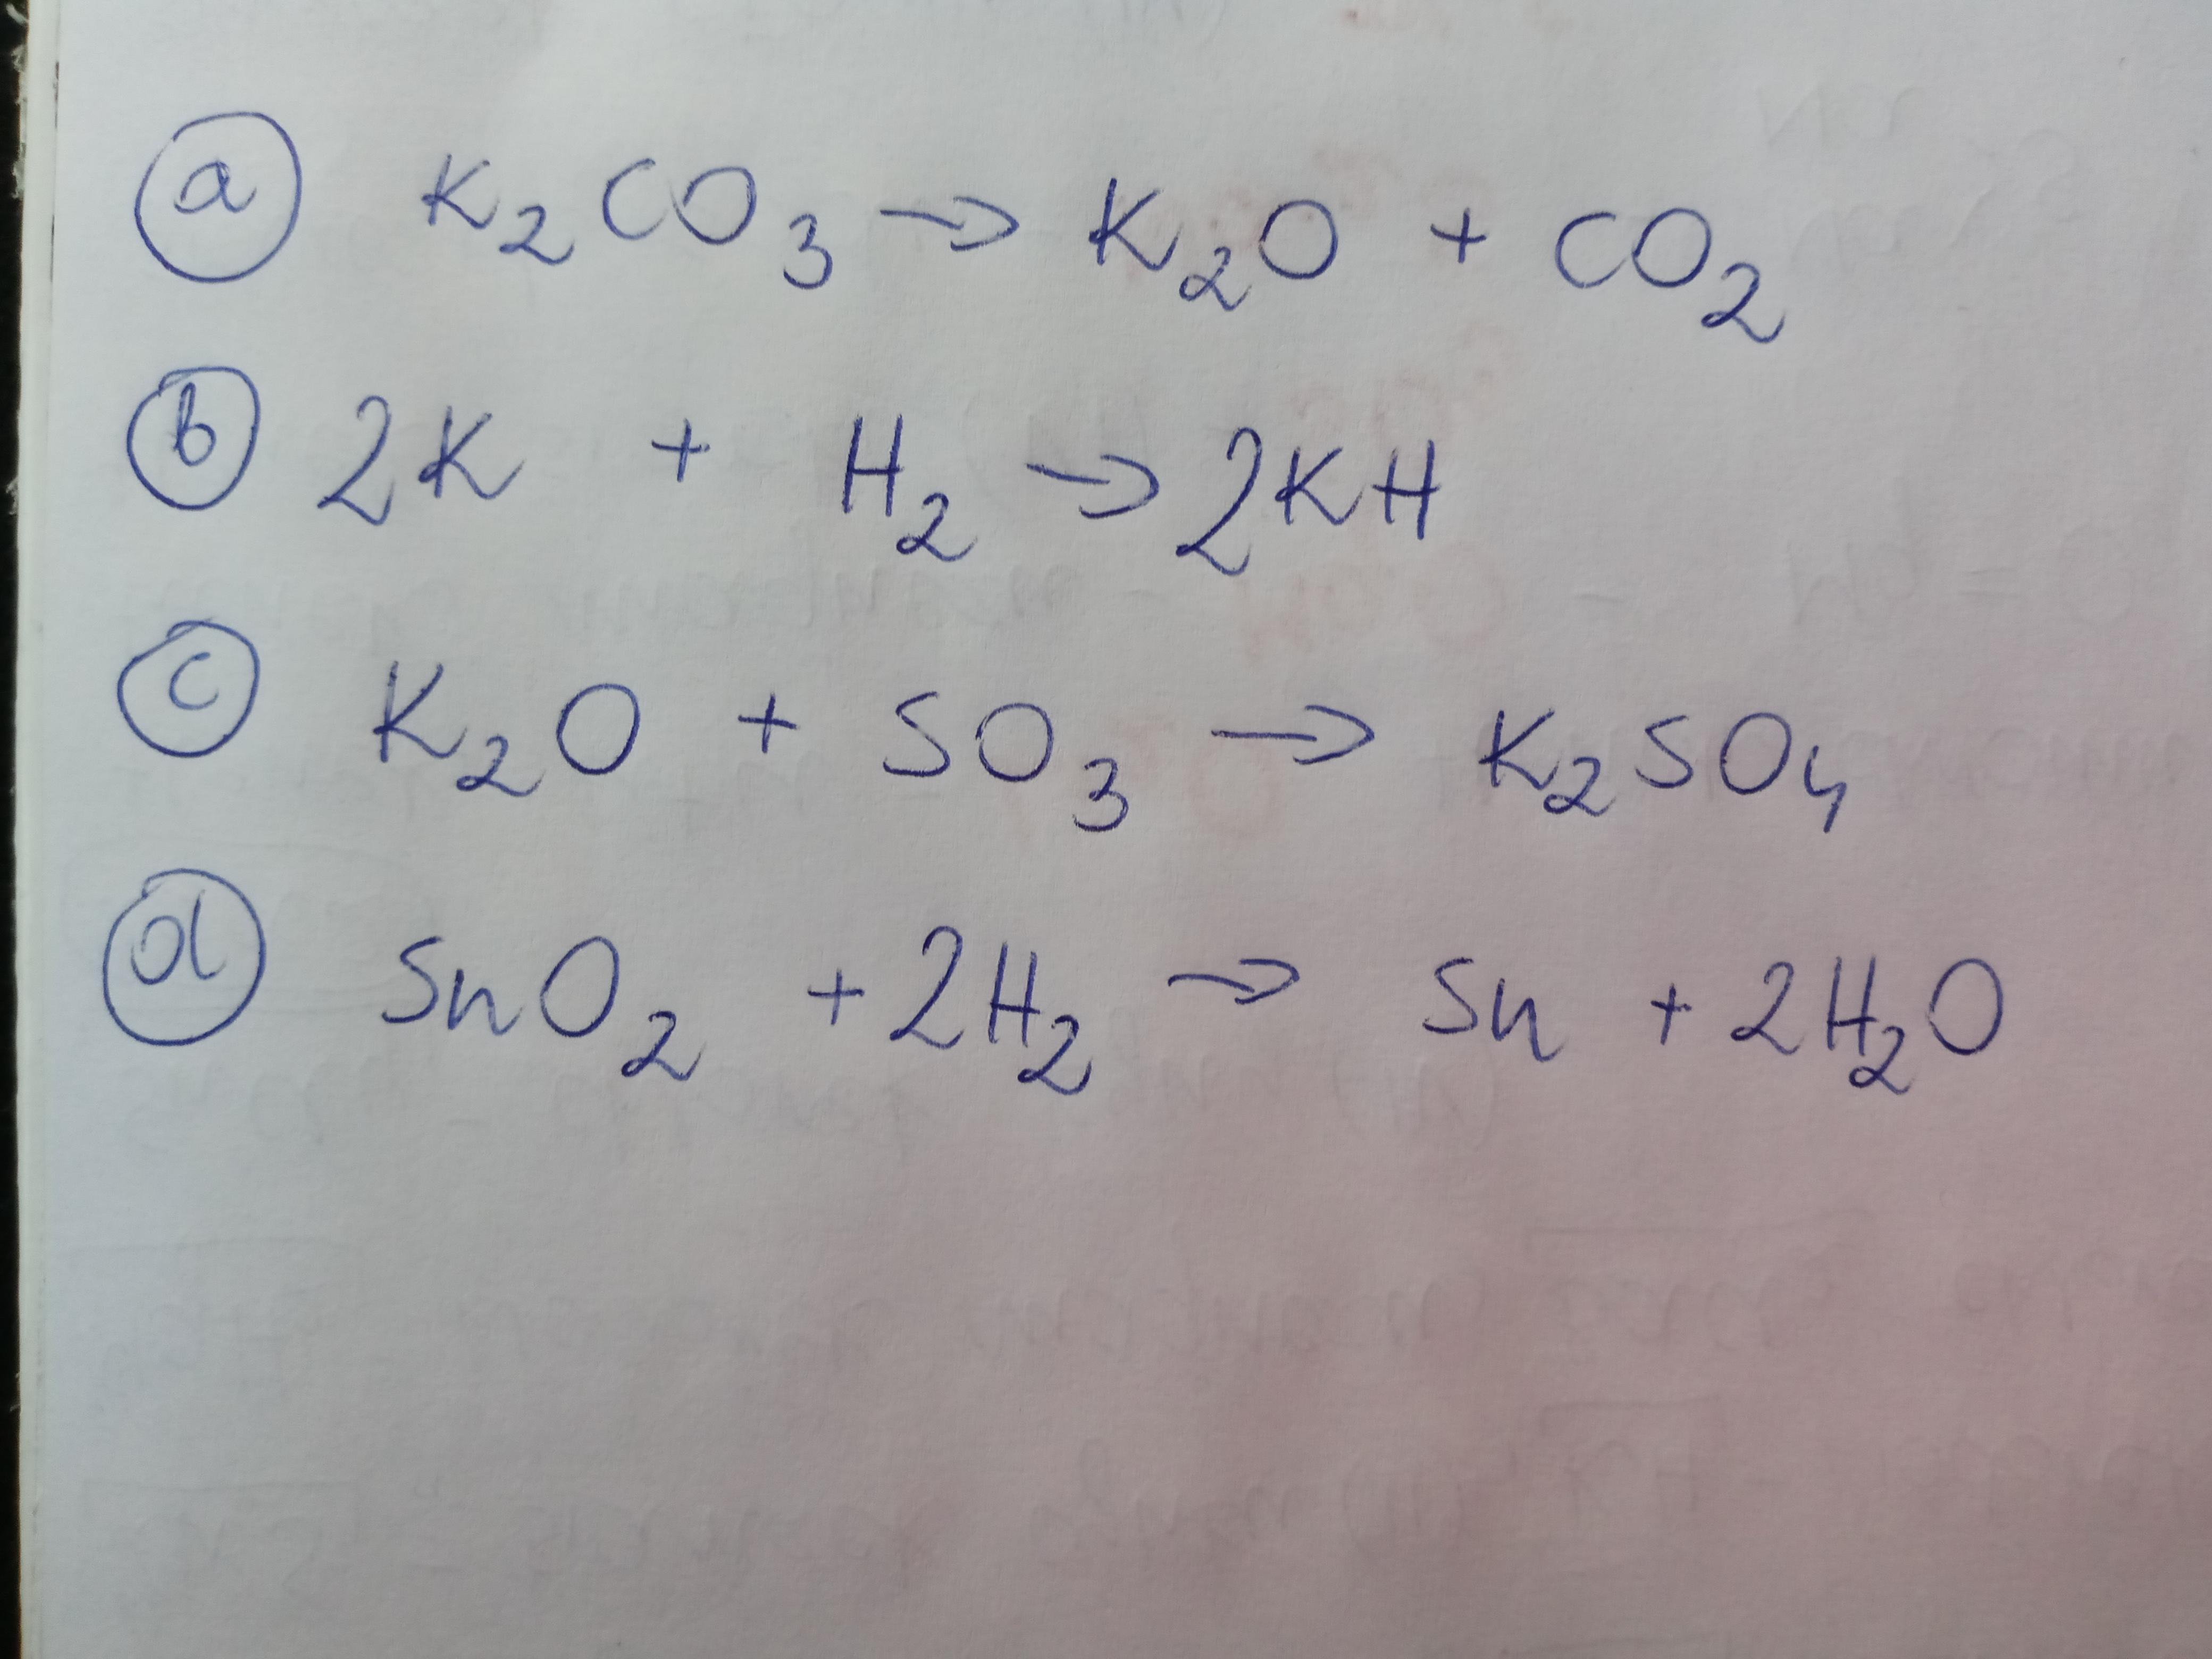 a K₂CO₃ → K₂O + CO₂
b 2K + H₂ → 2KH
c K₂O + SO₃ → K₂SO₄
d SnO₂ + 2H₂ → Sn + 2H₂O